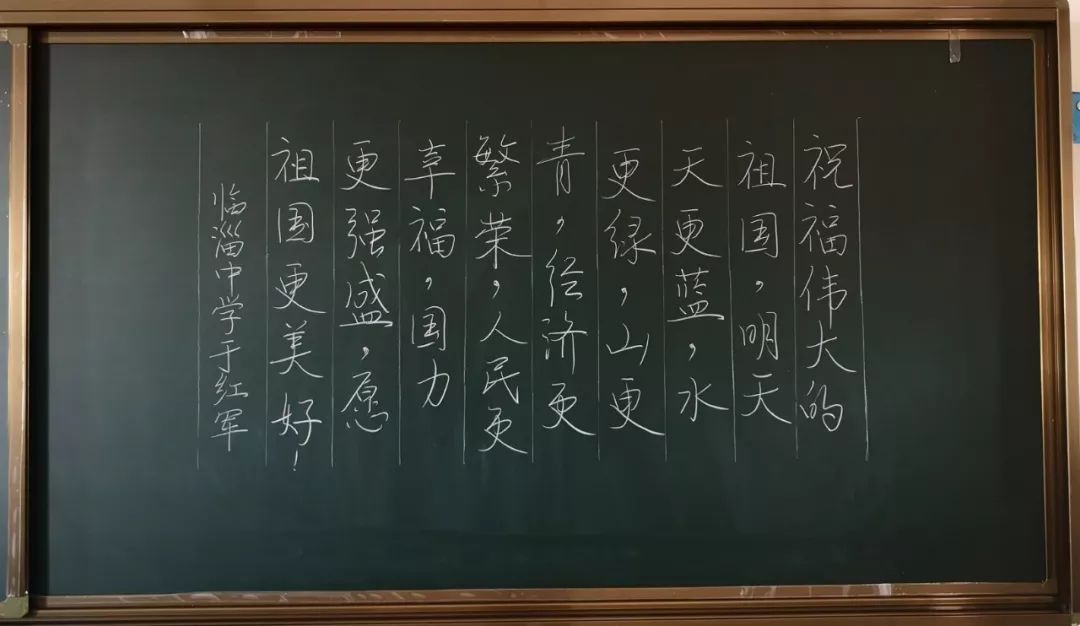 祝福伟大的
祖国，明天
天更蓝，水
更绿，山更
青，经济更
繁荣，人民更
幸福，国力
更强盛，愿
祖国更美好！
临淄中学于红军